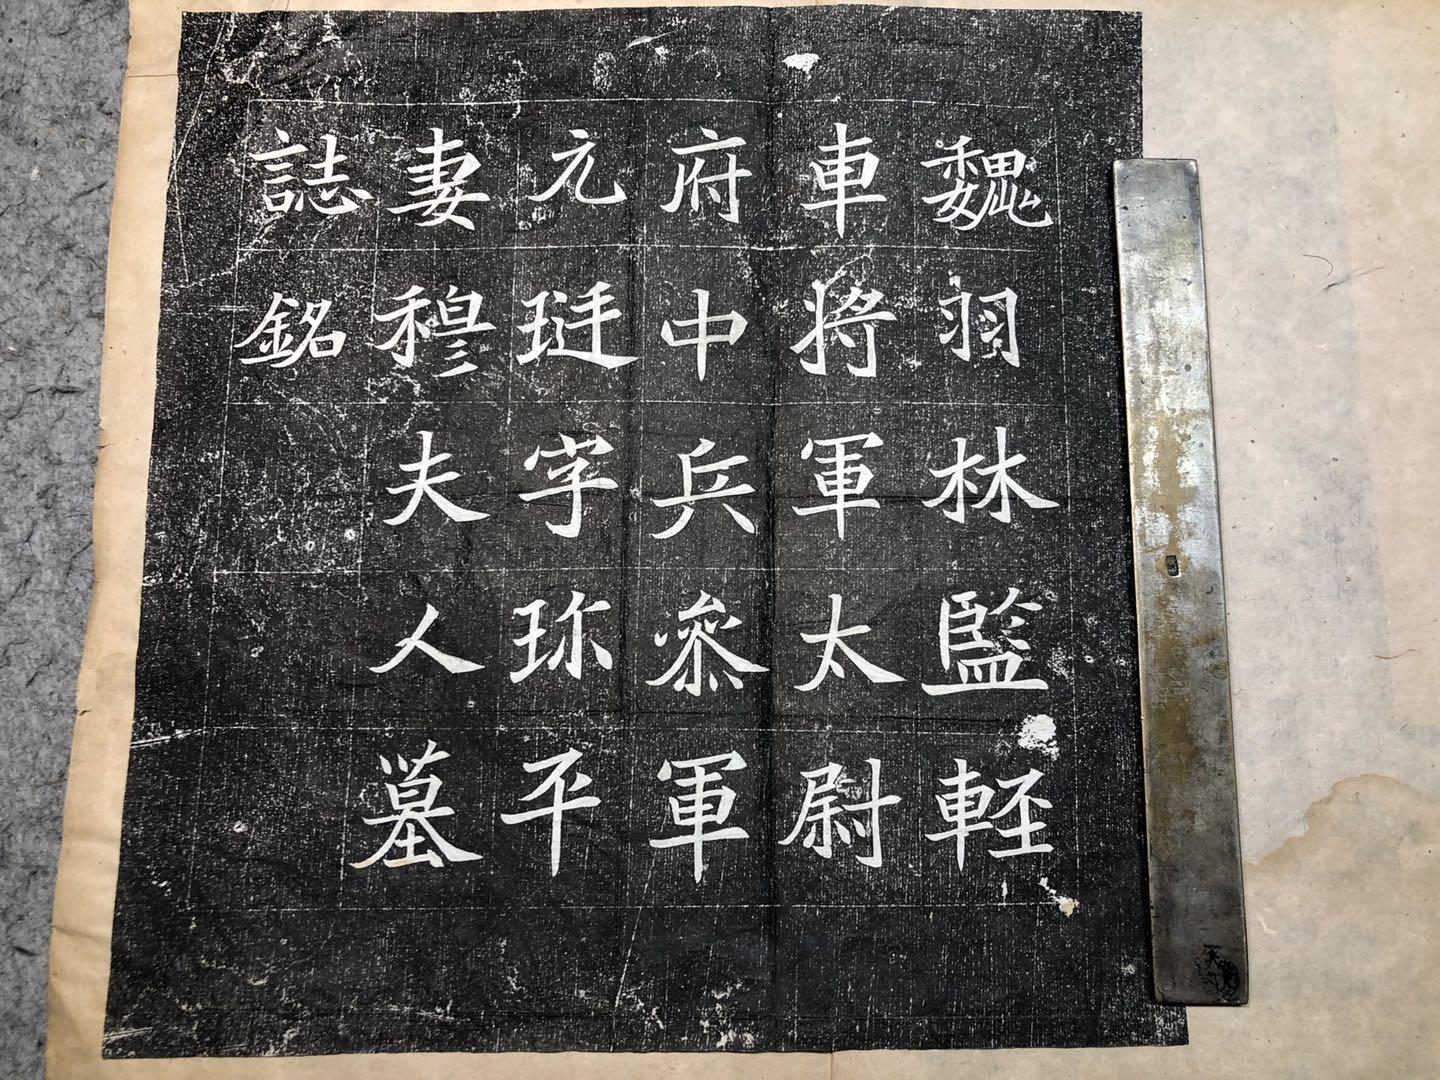 魏羽林監輕
車將軍太尉
府中兵參軍
元珽字珎平
妻穆夫人墓
誌銘